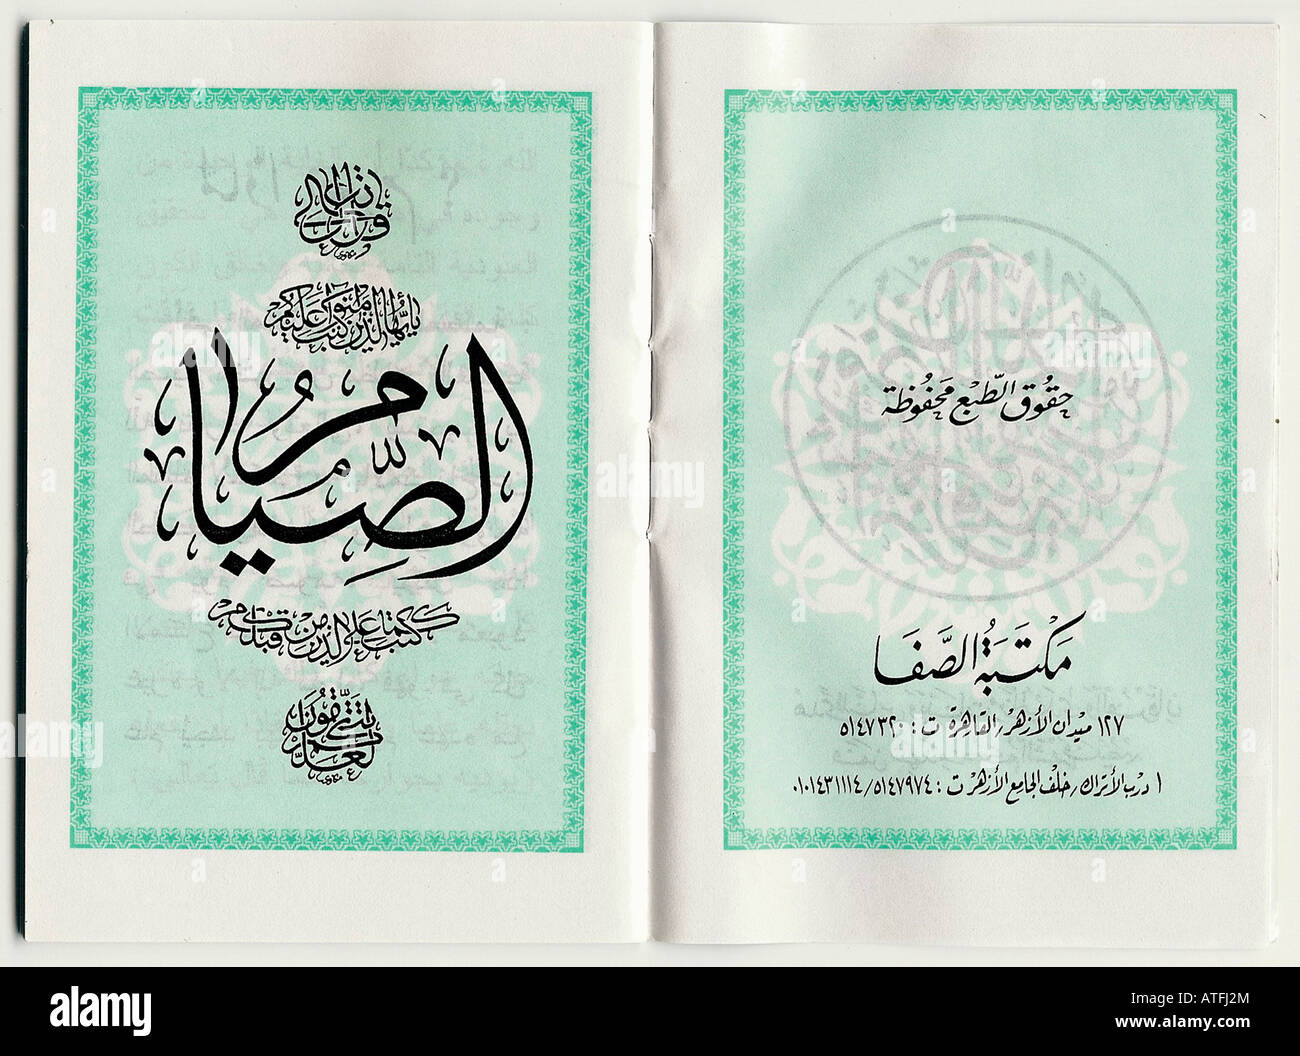 حقوق الطبع محفوظة
مكتبة الصفا
١٢٧ ميدان الأزهر/القاهرة ت: ٥١٤٧٣٢٠
١ درب الأتراك/خلف الجامع الأزهر ت: ٠١٠١٤٣١١١٤/٥١٤٧٩٧٤
قال الله تعالى
يا أيها الذين آمنوا كتب عليكم
الصيام
كما كتب على الذين من قبلكم
لعلكم تتقون
alamy
Image ID: ATFJ2M
www.alamy.com